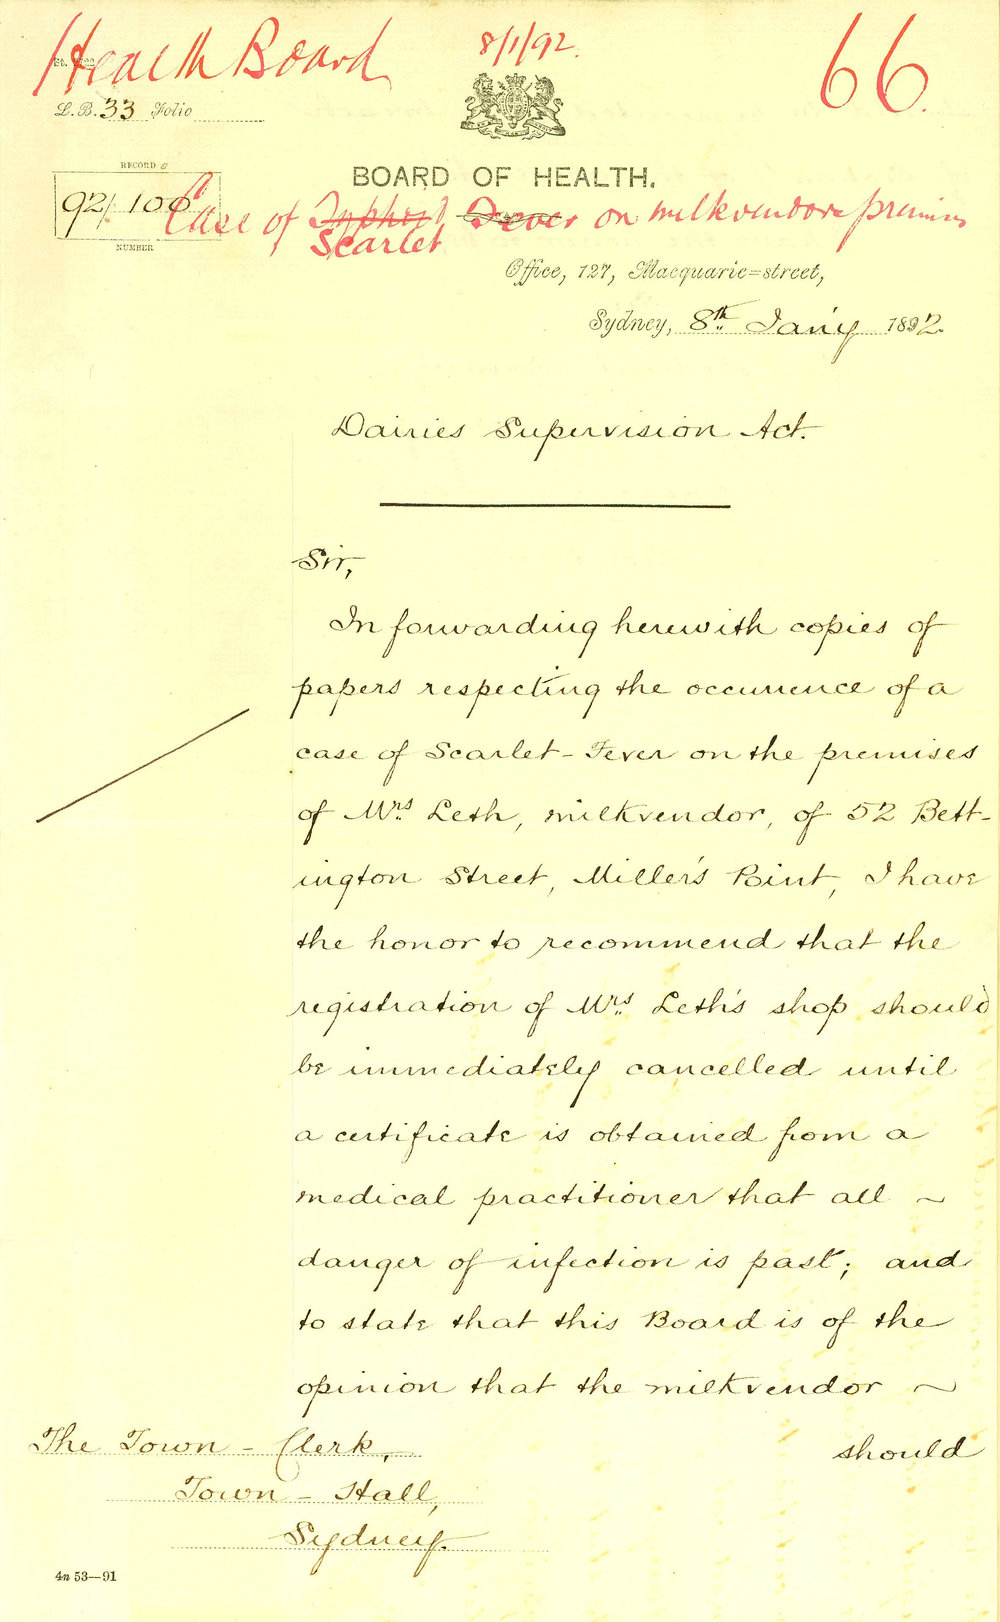 Health Board
8/1/92.
66.
L.B. 33 Folio
RECORD
92/. 106
NUMBER
BOARD OF HEALTH.
Case of Typhoid Fever on milkvendors premises
Scarlet
Office, 127, Macquarie=street,
Sydney, 8th Jan'y 1892.
Dairies Supervision Act.
Sir,
In forwarding herewith copies of
papers respecting the occurrence of a
case of Scarlet-Fever on the premises
of Mrs Leth, milkvendor, of 52 Bett-
ington Street, Miller's Point, I have
the honor to recommend that the
registration of Mrs Leth's shop should
be immediately cancelled until
a certificate is obtained from a
medical practitioner that all ~
danger of infection is past; and
to state that this Board is of the
opinion that the milkvendor ~
should
The Town-Clerk,
Town-Hall,
Sydney.
4n 53—91